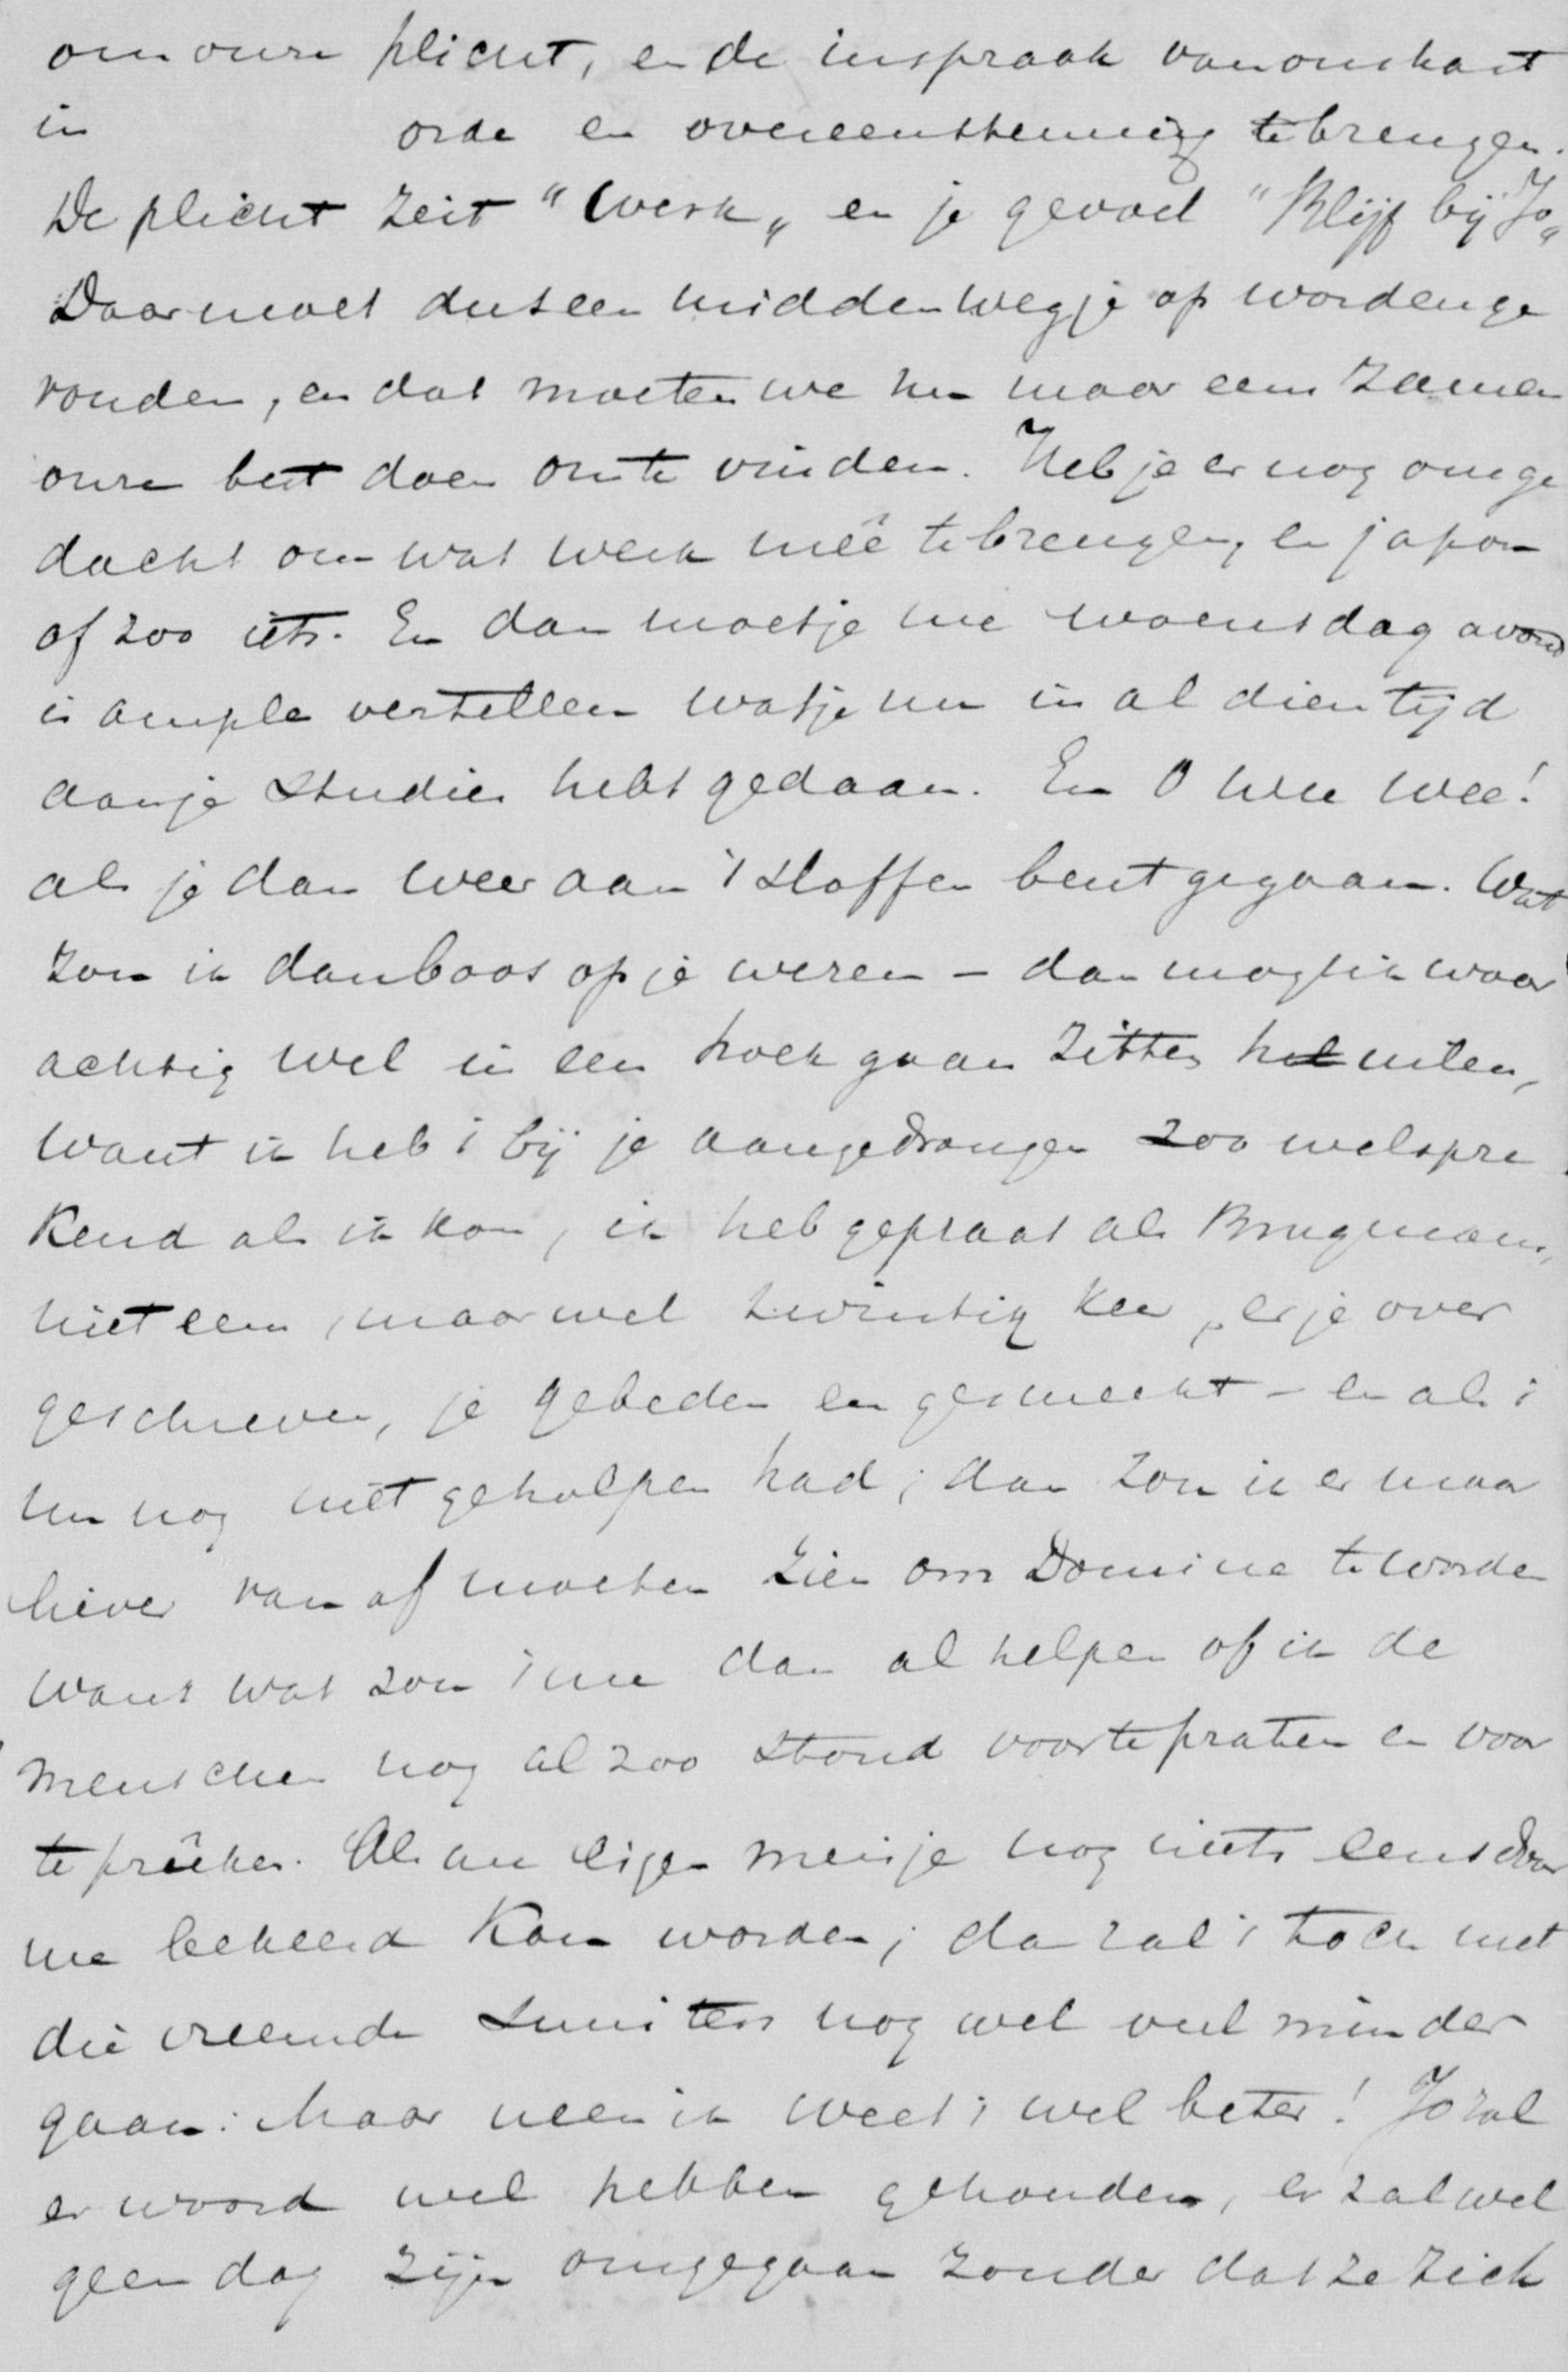 om onze plicht, en de inspraak van ons hart
in orde en overeenstemming te brengen.
De plicht zeit "Werk„ en je gevoel "Blijf bij Jo„
Daar moet dus een middenwegje op worden ge
vonden, en dat moeten we nu maar eens zamen
onze best doen om te vinden. Heb je er nog om ge
dacht om wat werk meê te brengen, en japon
of zoo iets. En dan moet je me woensdag avond
is ample vertellen wat je nu in al dien tijd
aan je Studies hebt gedaan. En O wee wee!
als je dan weer aan 't sloffen bent gegaan. Wat
zou ik dan boos op je wezen - dan mogt ik waar
achtig wel in een hoek gaan zitten huilen,
want ik heb 't bij je aangedrongen zoo welspre
kend als ik kon, ik heb gepraat als Brugman,
niet een, maar wel twintig keer, er je over
geschreven, je gebeden en gesmeekt - en als 't
nu nog niet geholpen had; dan zou ik er maar
liever van af moeten zien om Domine te worden
want wat zou 't me dan al helpen of ik de
menschen nog al zoo stond voor te praten en voor
te prêeken. Als me eigen meisje nog niets eens door
me bekeerd kan worden; dan zal 't toch met
die vreemde Snuiters nog wel veel minder
gaan. Maar neen ik weet 't wel beter! Jo zal
er woord wel hebben gehouden, er zal wel
geen dag zijn omgegaan zonder dat ze zich